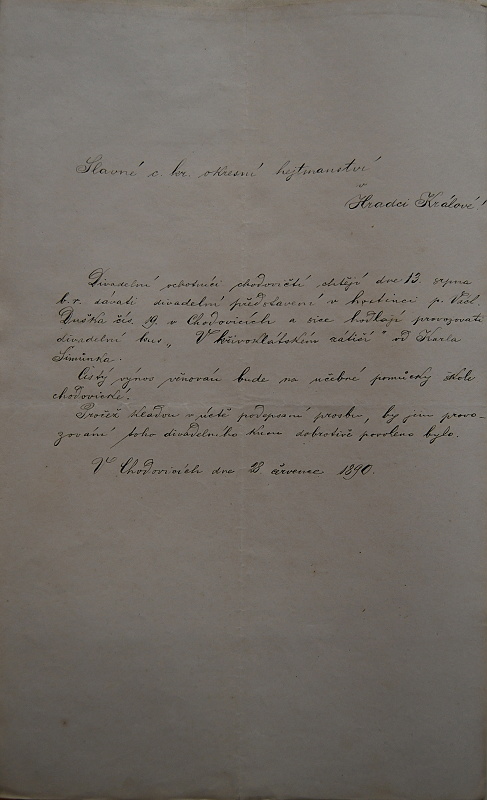 Slavné c. kr. okresní hejtmanství
v
Hradci Králové!
Divadelní ochotníci chodovičtí chtějí dne 13. srpna
b. r. dávati divadelní představení v hostinci p. Václ.
Duška čís. 19. v Chodovicích a sice hodlají provozovati
divadelní kus „V křivoklátském zátiší" od Karla
Šimůnka.
Čistý výnos věnován bude na učebné pomůcky škole
chodovické.
Pročež kladou v úctě podepsaní prosbu, by jim provo-
zování toho divadelního kusu dobrotivě povoleno bylo.
V Chodovicích dne 23 července 1890.